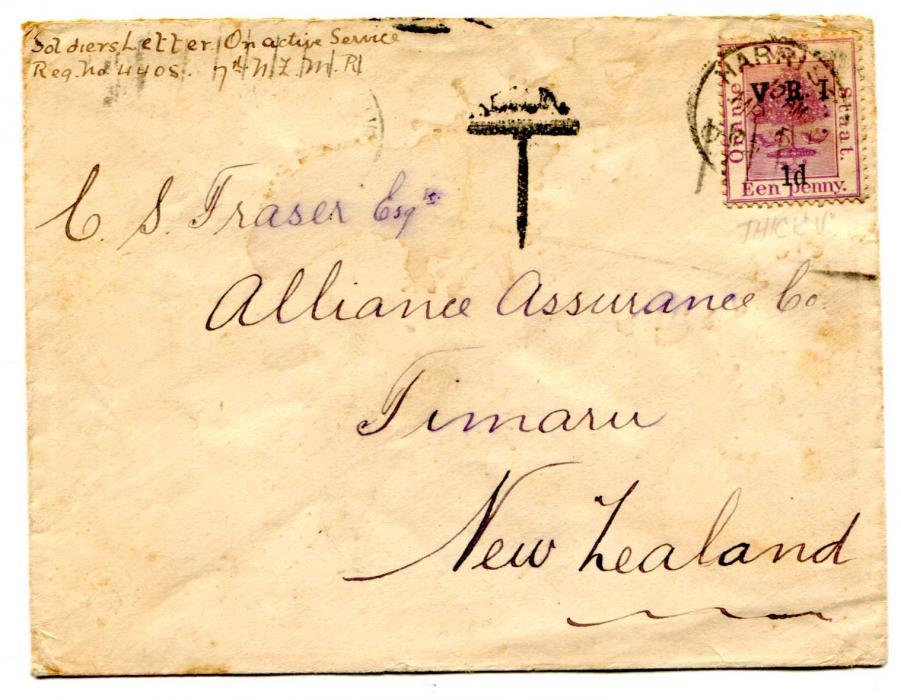 Soldiers Letter On active Service
Reg. No 4405. 7th N.Z.M.R
HARRISM
V.R.I
Oranje
Staat.
1d
Een penny.
THICK "V"
C. S. Fraser Esqre
Alliance Assurance Co
Timaru
New Zealand